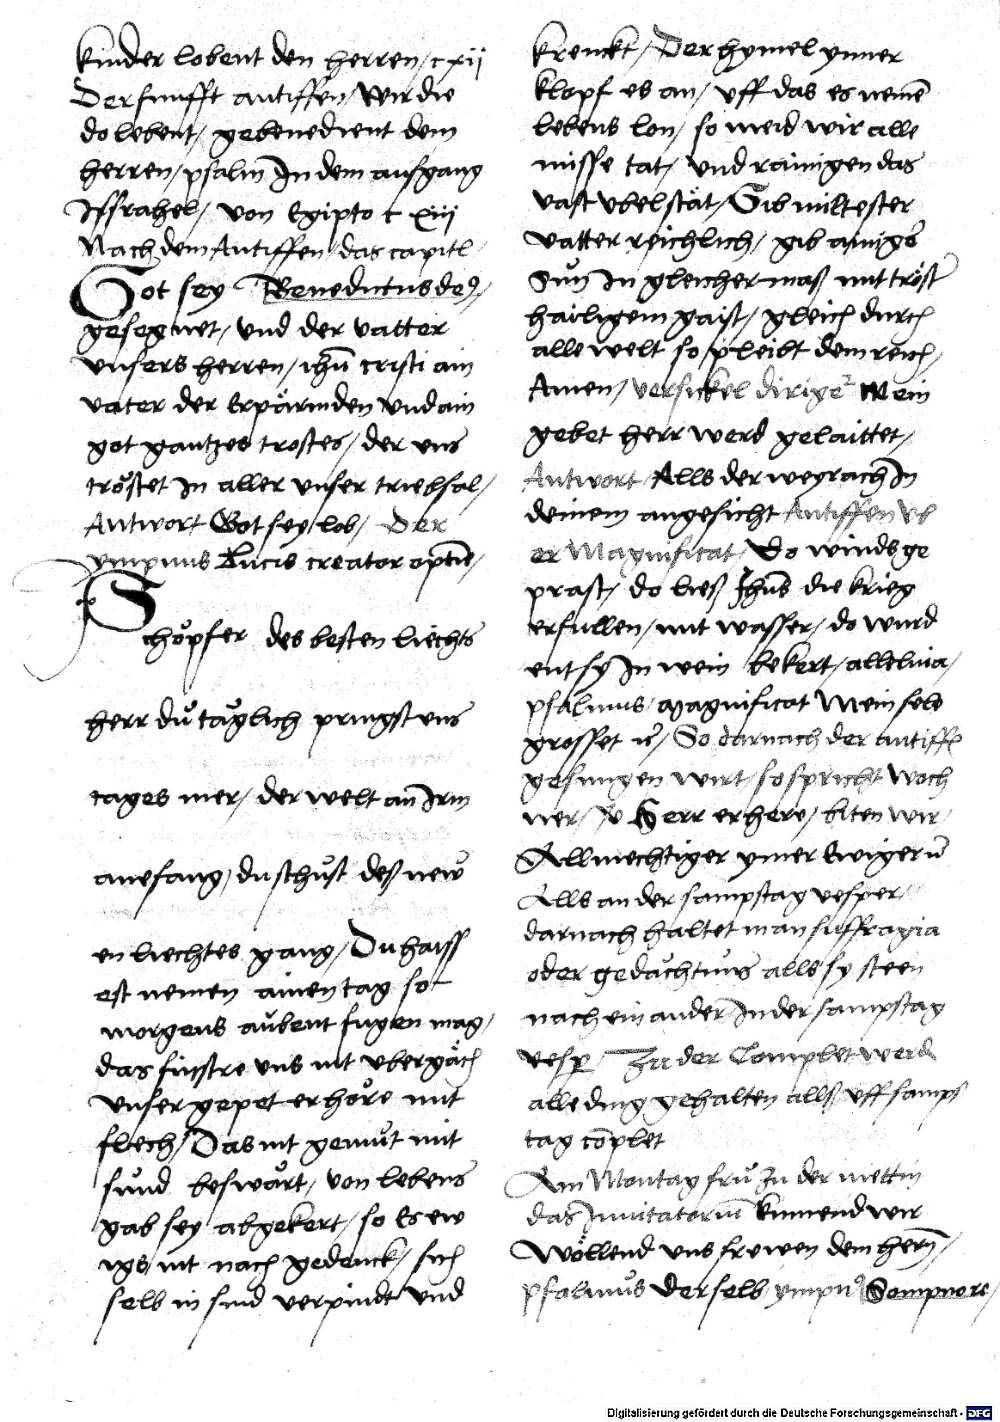 kinder lobent den herren / cxij
Der funfft antiffen / Wir die
do lebent / gebenedient dem
herren / psalm In dem aufgang
Issrahel / von Egipto c xiij
Nach dem Antiffen / das capitl /
Got sey Benedictus de9 /
gesegnet / und der vatter
unsers herren / ihũ cristi ain
vater der Erpärmden und ain
got gantzes trostes / der uns
tröstet In aller unser triebsal /
Antwort Got sey lob / Der
ympnus Lucis creator optīe /
Schöpfer des besten liechts
herr dů täglich pringst uns
tages mer / der welt an Irm
anefang / du schůst deß new
en liechtes gang / Du haiss
est nemen ainen tag so
morgens aůbent fugen mag /
das finstre uns nit ubergäch
unser gepet erhöre mit
flech / Das nit gemůt mit
sůnd beswärt / von lebens
gab sey abgekert / so Es ew
igs nit nach gedenck / sich
selb in sund verpindt und
krenckt / Der hymel ynner
klopf es an / uff das es nemē
lebens lon / so meid wir alle
misse tat / und rainigen das
vast ubel stät / Gib miltester
vatter reichlich / gib ainiger
Sůn In gleicher maß mit tröst
hailigem gaist / gleich durch
alle welt so pleibt dem reich /
Amen / versickel dirige Mein
gebet herr werd gelaittet /
Antwort Alls der weyrach In
deinem angesicht Antiffen ub
er Magnificat / Do winds ge
prast / do ließ Jhũs die krieg
erfullen / mit wasser / do wurd
ent sy In wein bekert / alleluia /
psalmus / Magnificat Mein sele
grosset / So darnach der antiffē
gesungen wirt / so spricht woch
ner / Herr erhere / biten wir /
Allmechtiger ymer Ewiger
Alls an der sampstag vesper /
darnach haltet man suffragia
oder gedächtnus alls sy steen
nach ein ander In der sampstag
vesp Zu der Complet werd
alle ding gehalten alls uff samps
tag cōplet
Am Montag frů zu der mettin
das Invitatoriū kumend wir
Wöllend uns frewen dem herrn /
psalmus der selb ympn9 Sompnore /
Digitalisierung gefördert durch die Deutsche Forschungsgemeinschaft - DFG